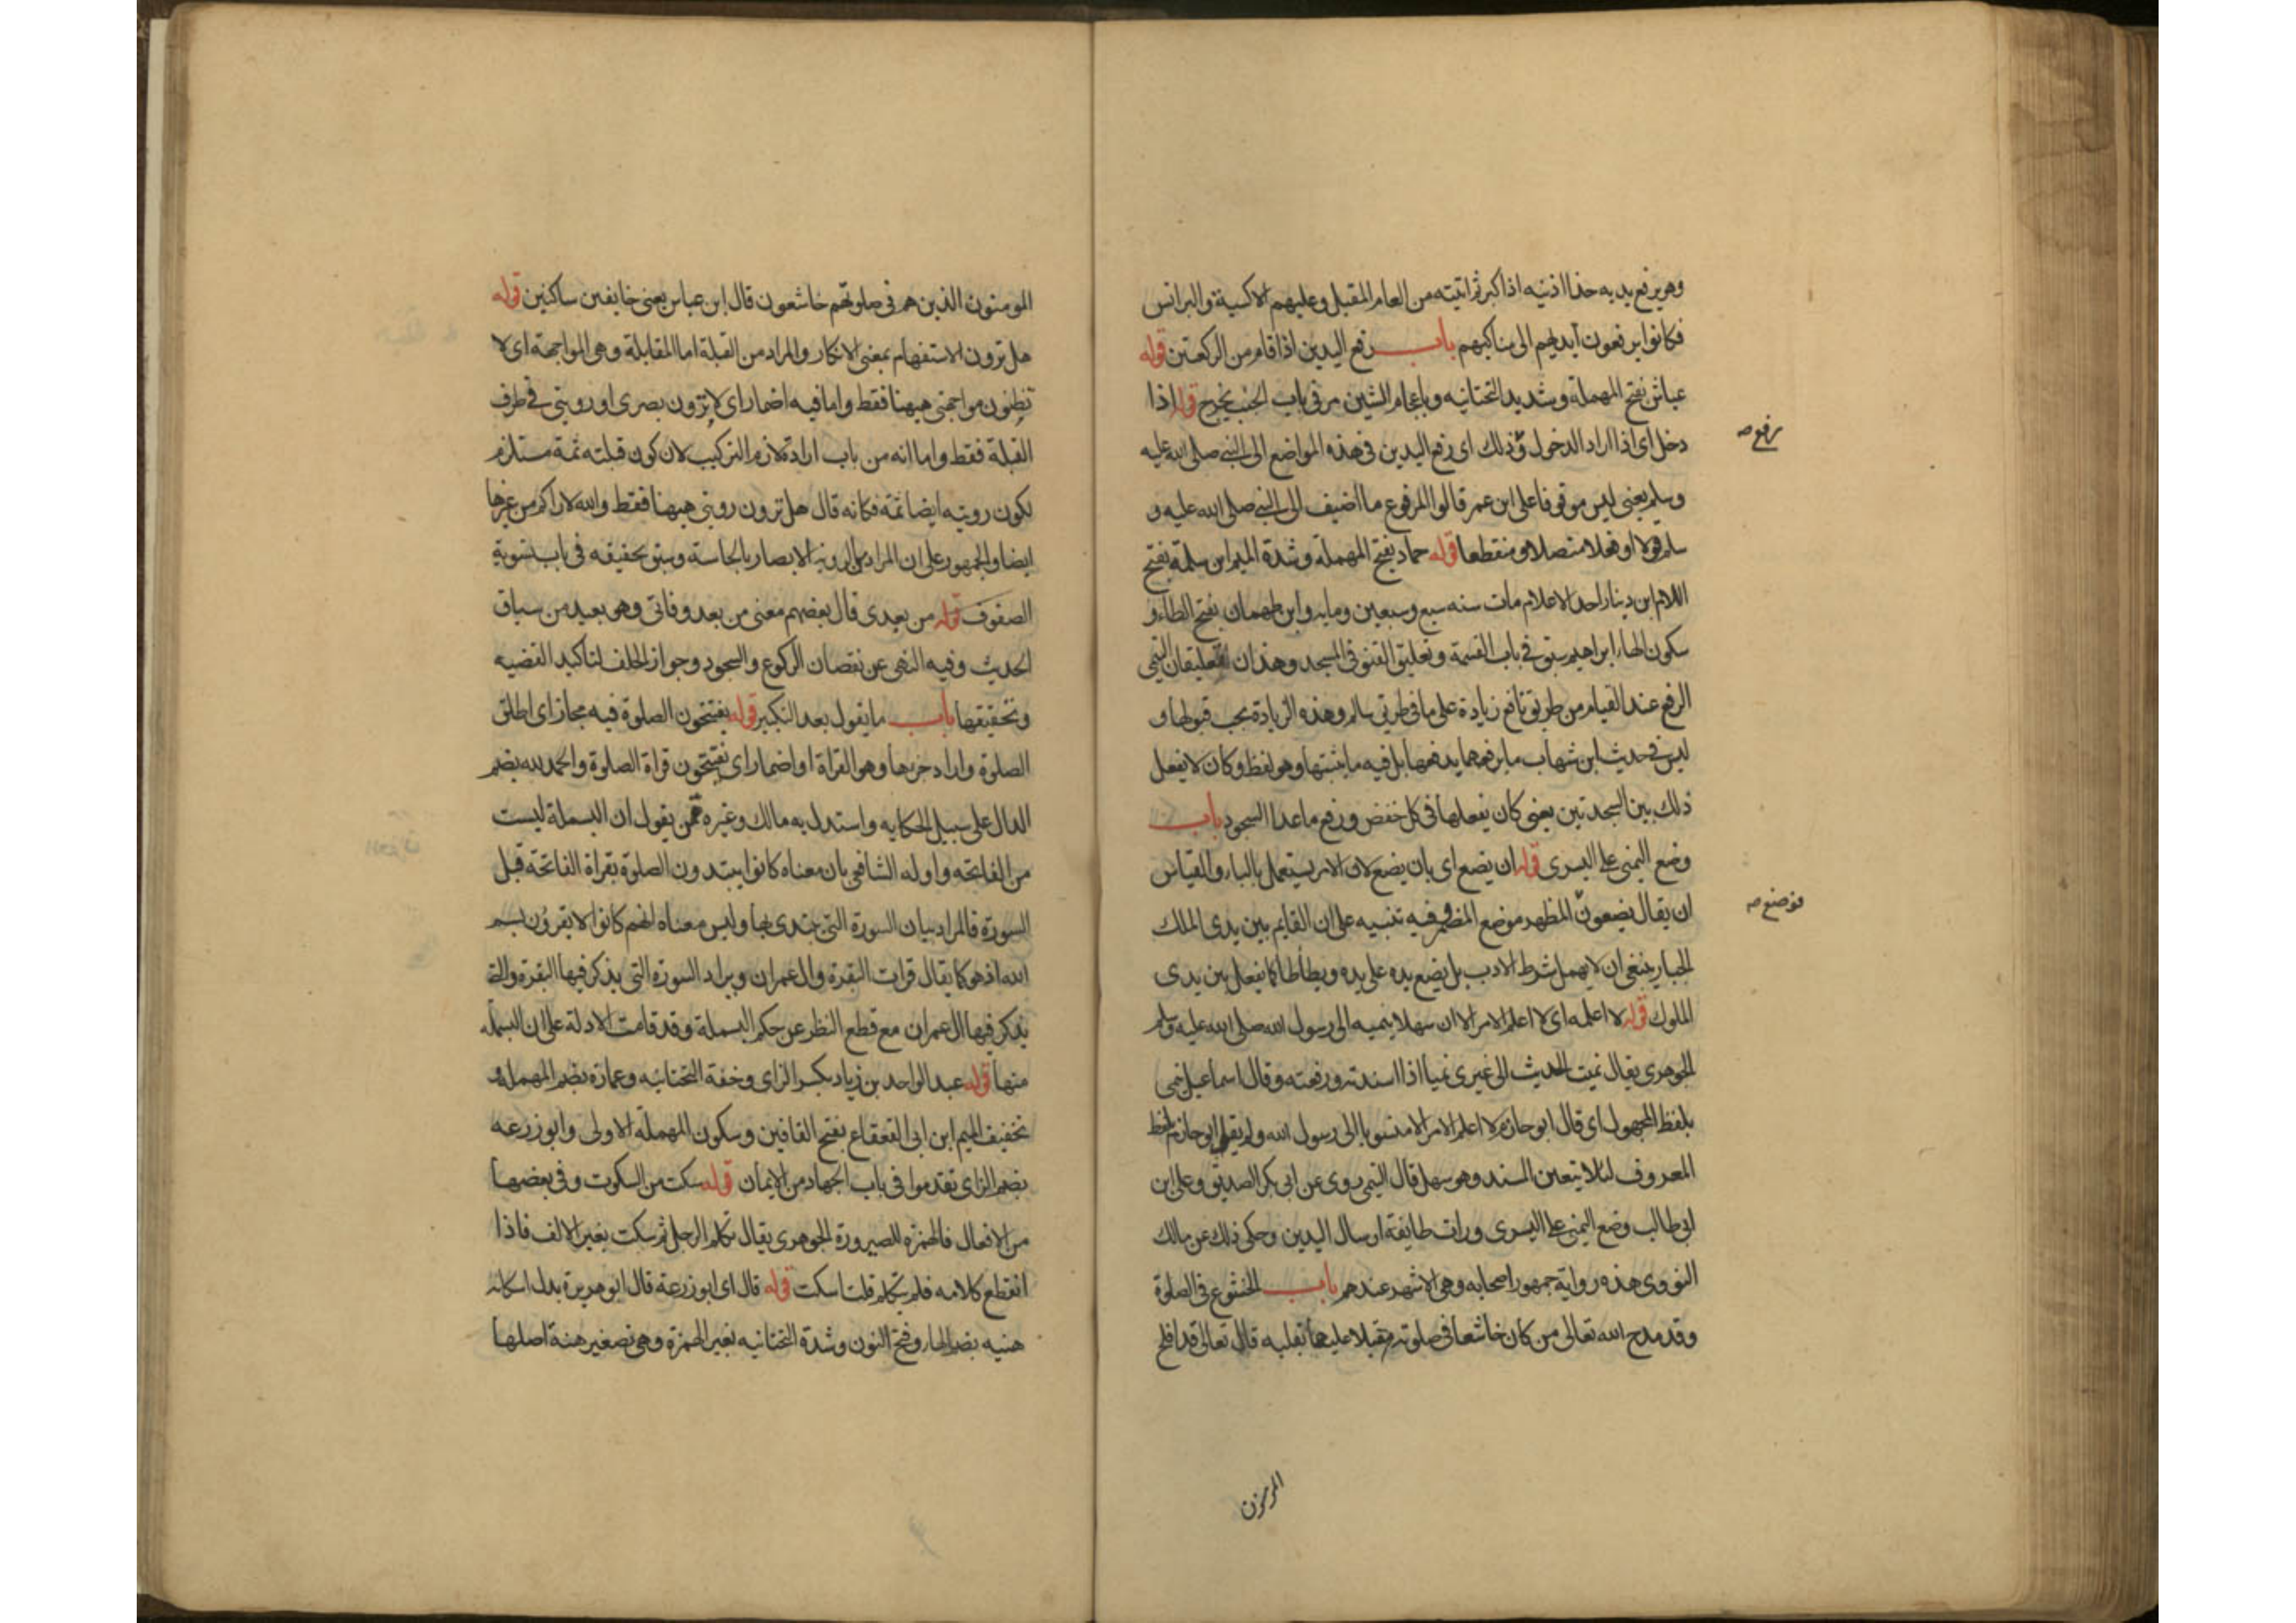 وهو يرفع يديه حذا اذنيه اذا كبر ثم اتيته من العام المقبل وعليهم الاكسية والبرانس
فكانوا يرفعون ايديهم الى مناكبهم باب رفع اليدين اذا قام من الركعتين قوله
عياش بفتح المهملة وشديد التحتانيه وباعجام الشين مر في باب الجنب يخرج قوله اذا
دخل اى اذا اراد الدخول وذلك اى رفع اليدين فى هذه المواضع الى النبي صلى الله عليه
يرفع صه
وسلم يعنى ليس موقوفا على ابن عمر قالوا المرفوع ما اضيف الى النبي صلى الله عليه و
سلم قولا او فعلا متصلا او منقطعا قوله حماد بفتح المهملة وشدة الميم ابن سلمة بفتح
اللام ابن دينار احد الاعلام مات سنه سبع وسبعين ومايه وابن طهمان بفتح الطاء و
سكون الهاء ابراهيم سبق في باب القسمة وتعليق القنو فى المسجد وهذان التعليقان التيمى
الرفع عند القيام من طريق نافع زيادة على ما فى طريق سالم وهذه الزيادة يجب قبولها و
ليس فى حديث ابن شهاب ما يرفعها يدفعها بل فيه ما يثبتها وهو لفظ وكان لا يفعل
ذلك بين السجدتين يعنى كان يفعلها فى كل خفض ورفع ما عدا السجود باب
وضع اليمنى على اليسرى قوله ان يضع اى بان يضع لان الامر يستعمل بالباء والقياس
ان يقال يضعون المظهر موضع المضمر وفيه تنبيه على ان القايم بين يدى الملك
فوضع صه
الجبار ينبغى ان لا يهمل شرط الادب بل يضع يده على يده ويطأطأ كما يفعل بين يدى
الملوك قوله لا اعلمه اى لا اعلم الامر الا ان سهلا ينميه الى رسول الله صلى الله عليه وسلم
الجوهرى يقال نميت الحديث الى غيرى نميا اذا اسندته ورفعته وقال اسماعيل ينمى
بلفظ المجهول اى قال ابو حازم لا اعلم الامر الا منسوبا الى رسول الله ولم يقل ابو حازم بلفظ
المعروف لئلا يتعين المسند وهو سهل قال التيمى روى عن ابى بكر الصديق وعلى ابن
ابى طالب وضع اليمنى على اليسرى ورات طايفة ارسال اليدين وحكى ذلك عن مالك
النووى هذه رواية جمهور اصحابه وهى الاشهر عندهم باب الخشوع فى الصلوة
وقد مدح الله تعالى من كان خاشعا فى صلوته مقبلا عليها بقلبه قال تعالى قد افلح
المومنون
المومنون الذين هم فى صلوتهم خاشعون قال ابن عباس يعنى خايفين ساكنين قوله
هل ترون الاستفهام بمعنى الانكار والمراد من القبلة اما المقابلة وهى المواجهة اى لا
تظنون مواجهتى ههنا فقط واما فيه اضمار اى لا ترون بصرى او رويتى فى طرف
القبلة فقط واما انه من باب ارادة لازم التركيب لان كون قبلته ثمة مستلزم
لكون رويته ايضا ثمة فكانه قال هل ترون رويتى ههنا فقط والله لاراكم من غيرها
ايضا والجمهور على ان المراد من الروية الابصار بالحاسة وسبق تحقيقه فى باب تسوية
الصفوف قوله من بعدى قال بعضهم معنى من بعد وفاتى وهو بعيد من سياق
الحديث وفيه النهى عن نقصان الركوع والسجود وجواز الحلف لتاكيد القضيه
وتحقيقها باب ما يقول بعد التكبير قوله يفتتحون الصلوة فيه مجاز اى اطلق
الصلوة واراد جزءها وهو القراة او اضمار اى يفتتحون قراة الصلوة والحمد لله بضم
الدال على سبيل الحكايه واستدل به مالك وغيره ممن يقول ان البسملة ليست
من الفاتحه واوله الشافعى بان معناه كانوا يبتدون الصلوة بقراة الفاتحة قبل
السورة فالمراد بيان السورة التى يبتدى بها وليس معناه انهم كانوا لا يقرون بسم
الله اذ هو كما يقال قرات البقرة وال عمران ويراد السورة التى يذكر فيها البقرة والتى
يذكر فيها ال عمران مع قطع النظر عن حكم البسملة وقد قامت الادلة على ان البسمله
منها قوله عبد الواحد بن زياد بكسر الزاى وخفة التحتانيه وعمارة بضم المهملة و
تخفيف الميم ابن ابى القعقاع بفتح القافين وسكون المهملة الاولى وابو زرعه
بضم الزاى تقدموا فى باب الجهاد من الايمان قوله سكت من السكوت وفى بعضها
من الافعال فالهمزه للصيرورة الجوهرى يقال تكلم الرجل ثم سكت بغير الالف فاذا
انقطع كلامه فلم يتكلم قلت اسكت قوله قال اى ابو زرعة قال ابو هريرة بدل اسكاته
هنيه بضم الهاء وفتح النون وشدة التحتانيه بغير الهمزة وهى تصغير هنة اصلها